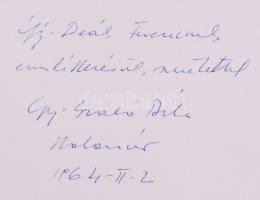 ifj. Deák Ferencnek
emlékezésül, szeretettel
Gy. Szabó Béla
Kolozsvár
1964-II-2